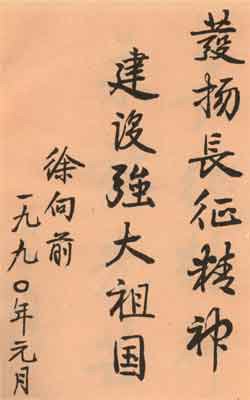 發扬長征精神
建设強大祖国
徐向前
一九九〇年元月